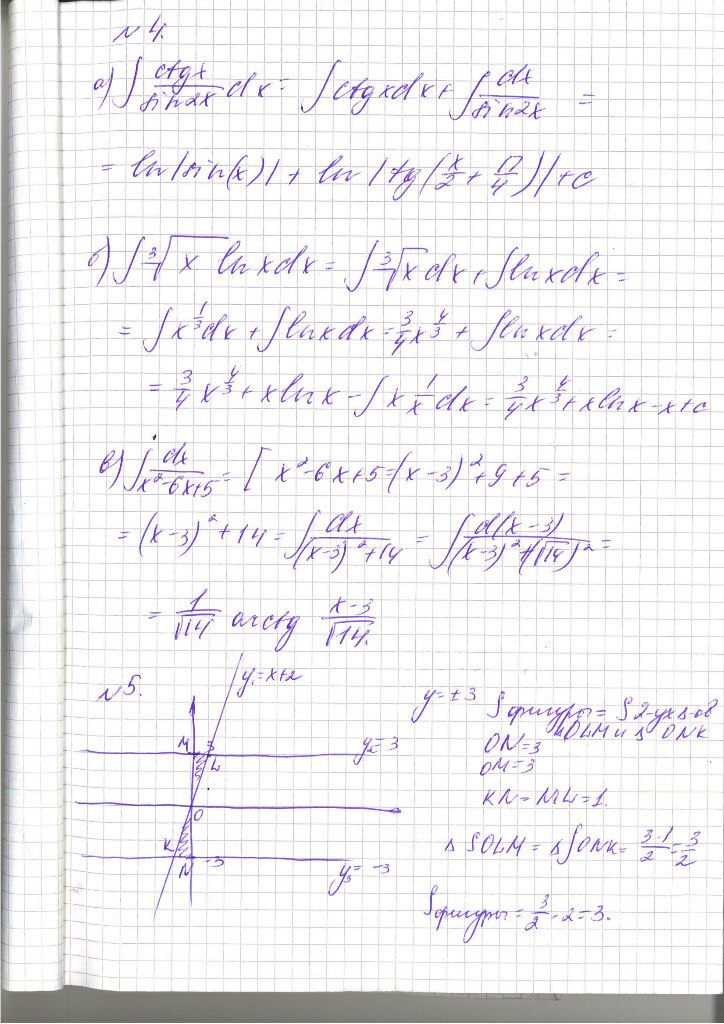 № 4.
а) ∫ ctgx/sin2x dx = ∫ctgxdx + ∫ dx/sin2x =
= ln|sin(x)| + ln|tg(x/2 + π/4)| + c
б) ∫ ∛x lnxdx = ∫ ∛x dx + ∫lnxdx =
= ∫x^(1/3)dx + ∫lnxdx = 3/4 x^(4/3) + ∫lnxdx =
= 3/4 x^(4/3) + xlnx - ∫x 1/x dx = 3/4 x^(4/3) + xlnx - x + c
в) ∫ dx/(x²-6x+5) = [ x²-6x+5 = (x-3)²+9+5 =
= (x-3)²+14 = ∫ dx/((x-3)²+14) = ∫ d(x-3)/((x-3)²+(√14)²) =
= 1/√14 arctg (x-3)/√14.
№5.
y₁=x+2
y=±3
M 3
L
y₂=3
O
K
N -3
y₃=-3
Sфигуры = S 2-ух Δ-ов
ΔOLM и Δ ONK
ON=3
OM=3
KN=ML=1.
Δ SOLM = Δ SONK = 3·1/2 = 3/2
Sфигуры = 3/2 · 2 = 3.